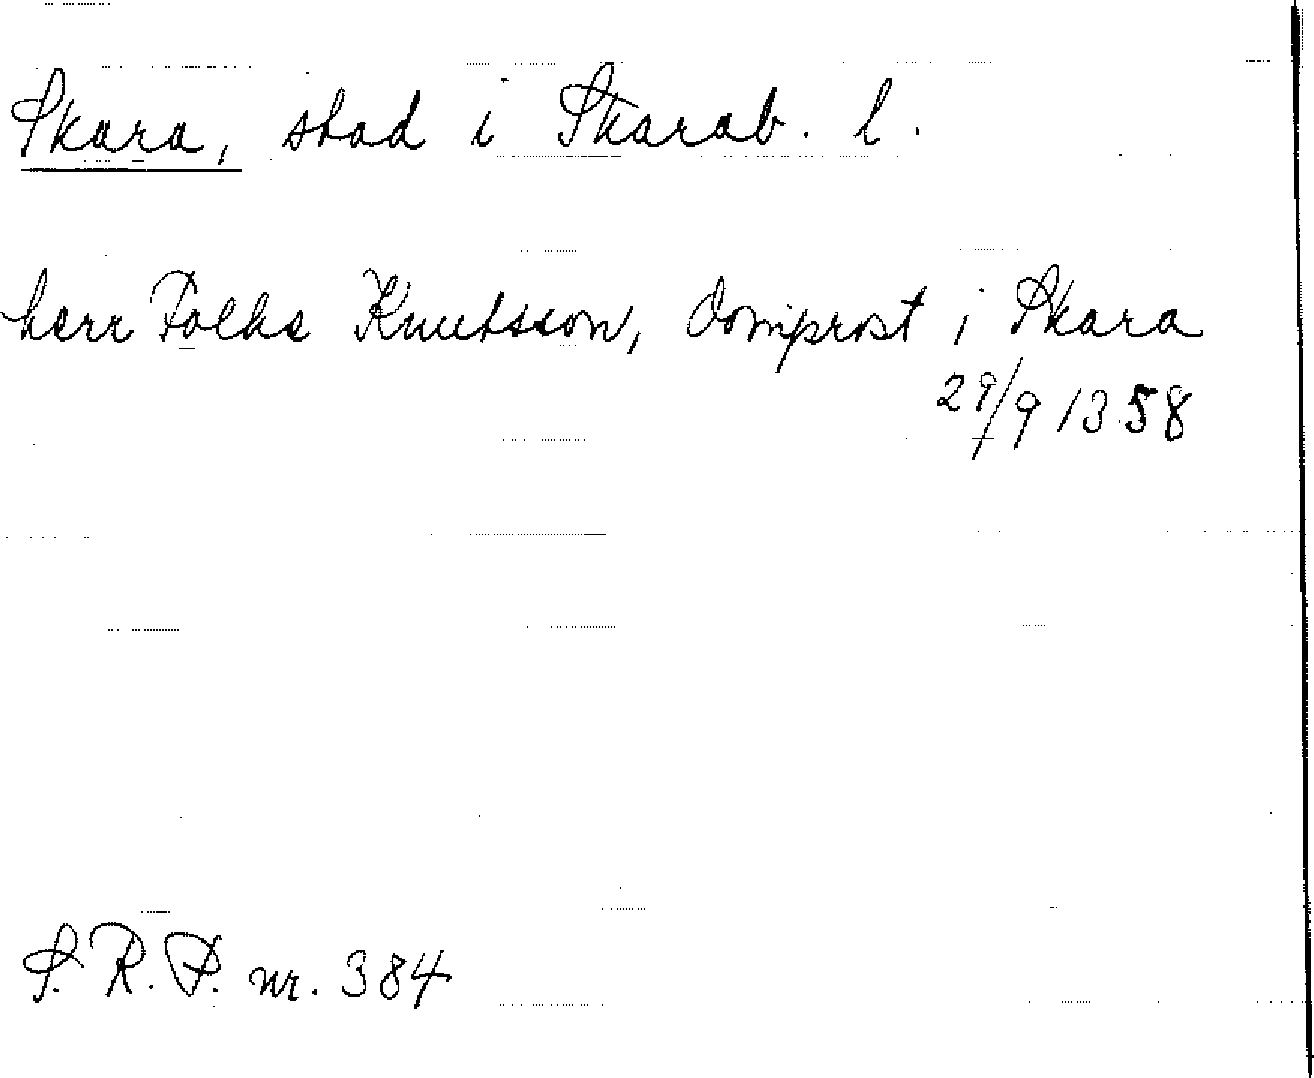 Skara, stad i Skarab. l.
herr Folke Knutsson, domprost i Skara
29/9 1358
S. R. P. nr. 384